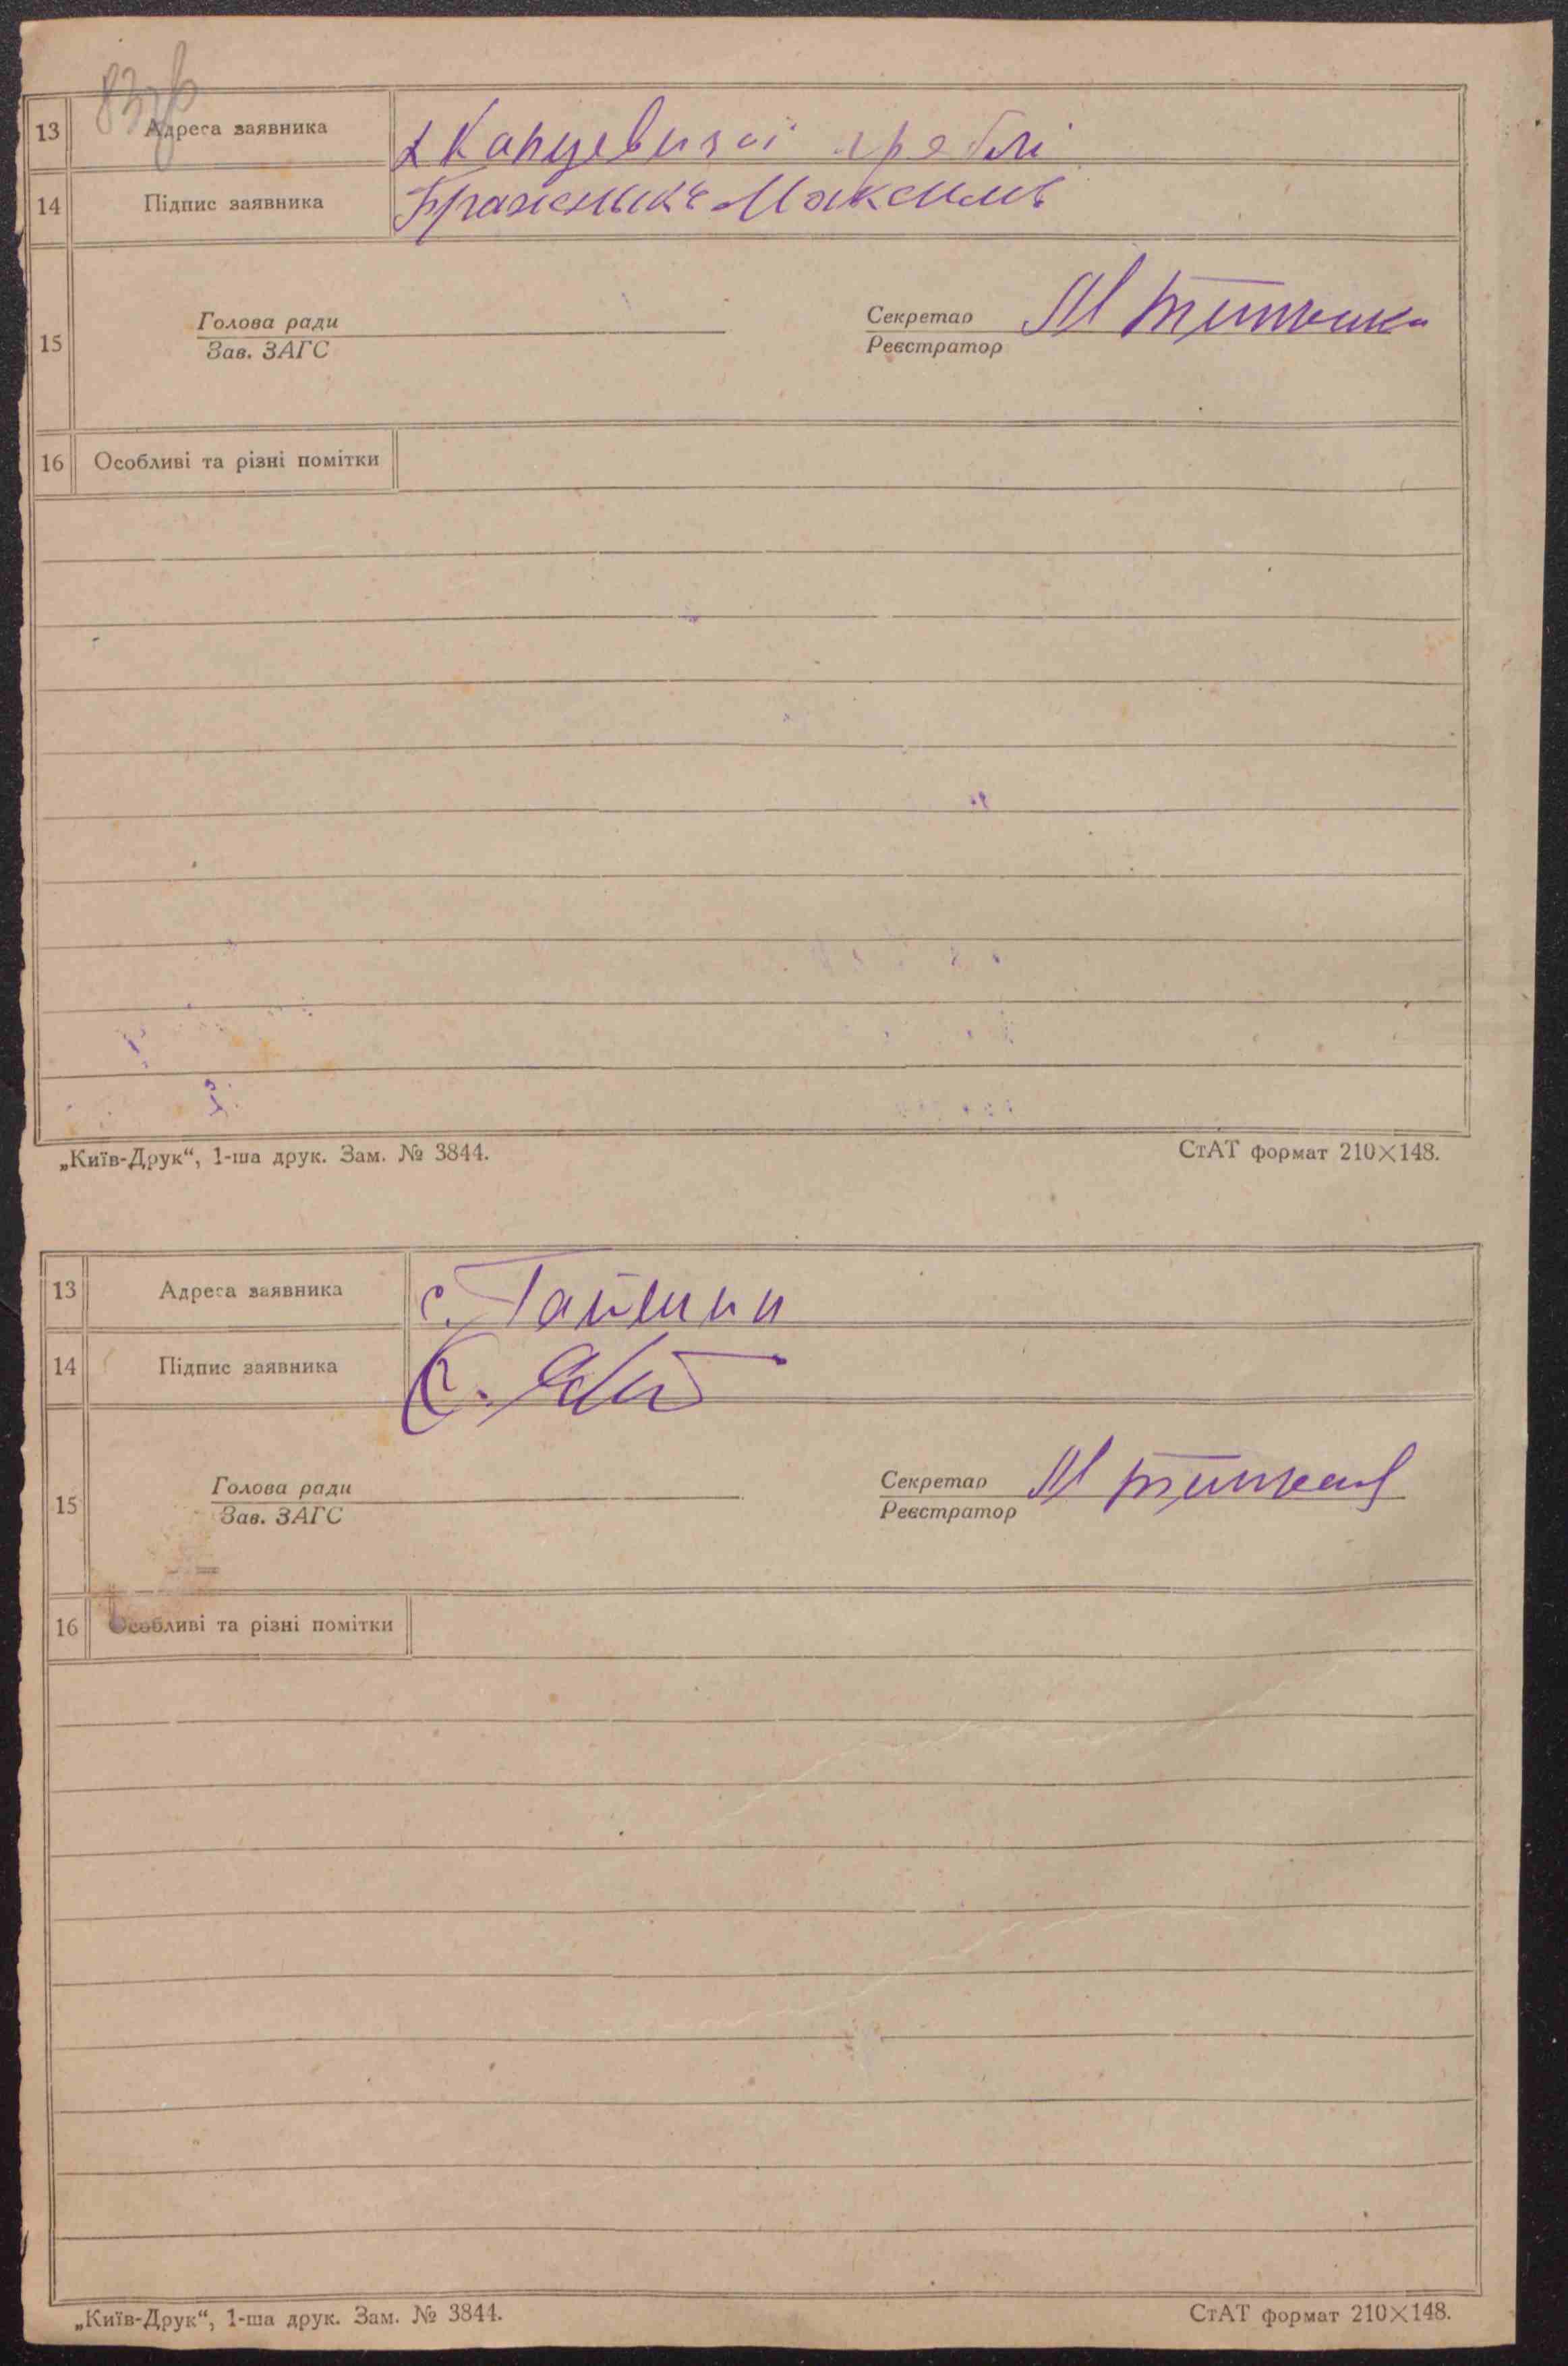 83зв
13 Адреса заявника х Канцевизої греблі
14 Підпис заявника Бражныкъ Максимъ
15 Голова ради Зав. ЗАГС Секретар Реєстратор
16 Особливі та різні помітки
„Київ-Друк“, 1-ша друк. Зам. № 3844. СтАТ формат 210×148.
13 Адреса заявника с. Гайшин
14 Підпис заявника
15 Голова ради Зав. ЗАГС Секретар Реєстратор
16 Особливі та різні помітки
„Київ-Друк“, 1-ша друк. Зам. № 3844. СтАТ формат 210×148.